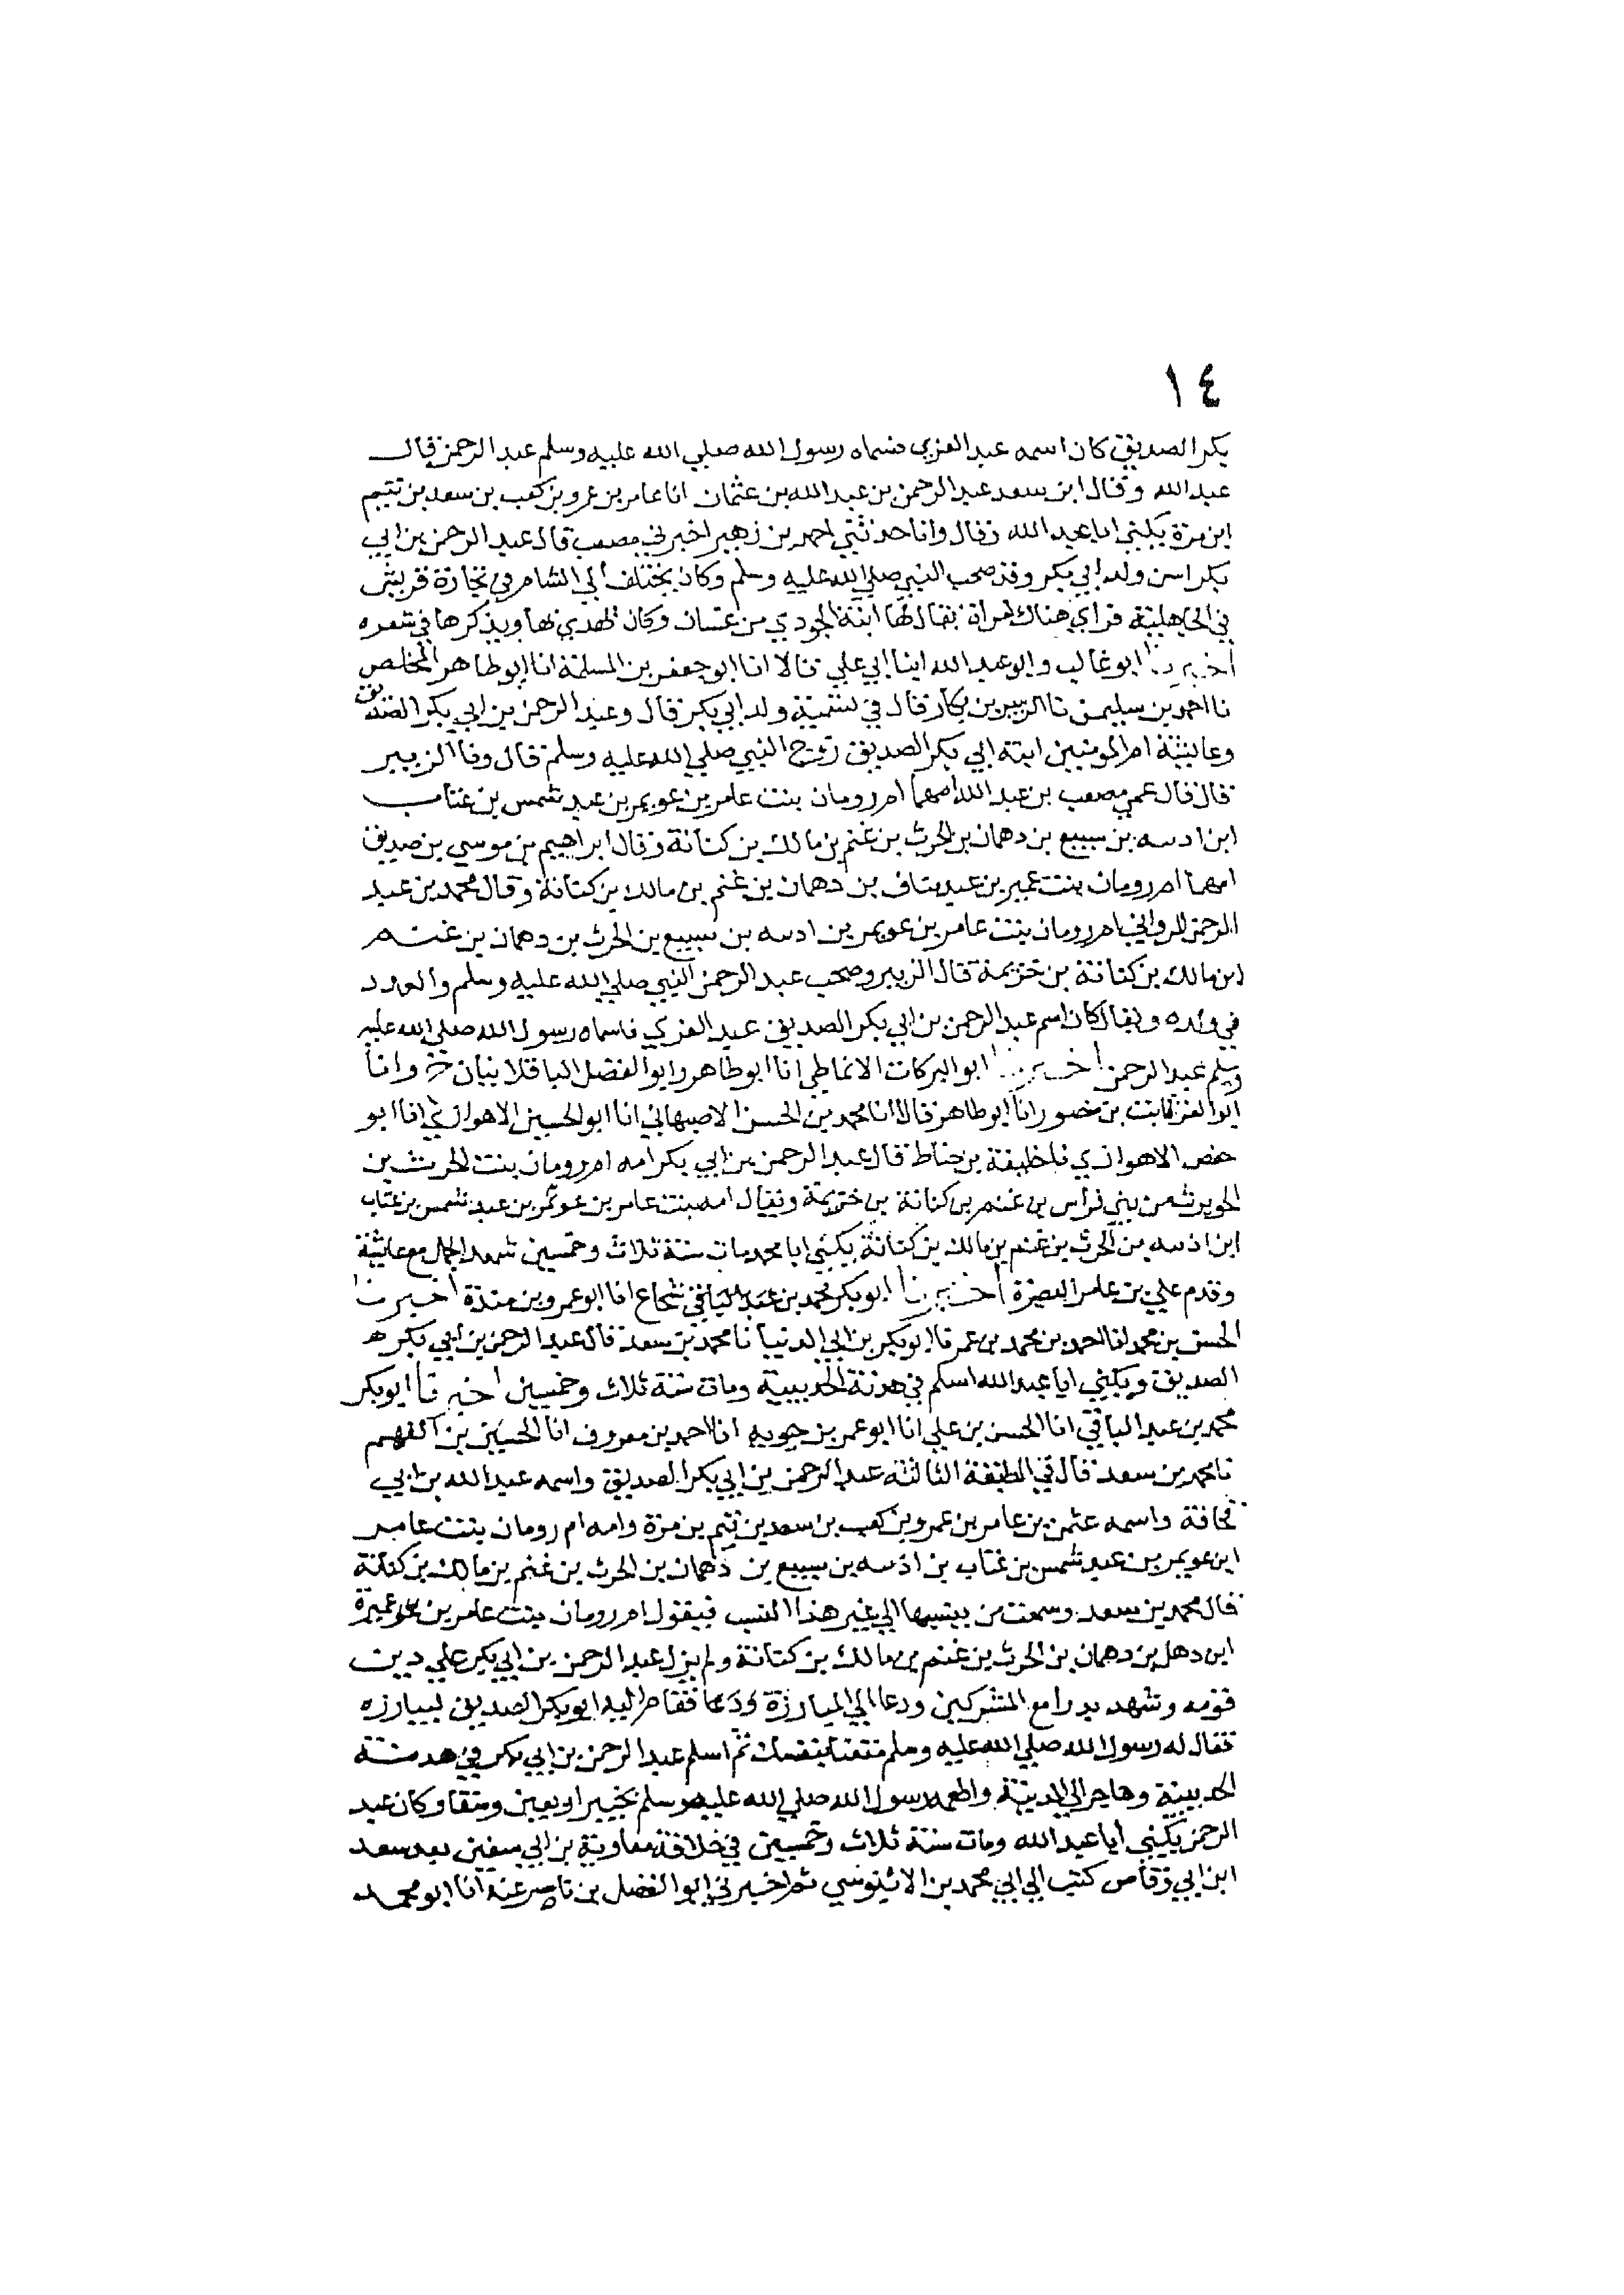 ١٤
بكر الصديق كان اسمه عبد العزي فسماه رسول الله صلي الله عليه وسلم عبد الرحمن قال
عبد الله وقال ابن سعد عبد الرحمن بن عبد الله بن عثمان انا عامر بن عمرو بن كعب بن سعد بن تيم
ابن مرة يكني ابا عبد الله وقال وانا حدثني احمد بن زهير اخبرني مصعب قال عبد الرحمن بن ابي
بكر اسن ولد ابي بكر وقد صحب النبي صلي الله عليه وسلم وكان يختلف الي الشام في تجارة قريش
في الجاهلية فراي هناك امراة يقال لها ابنة الجودي من غسان وكان يهذي بها ويذكرها في شعره
اخبرنا ابو غالب وابو عبد الله ابنا ابي علي قالا انا ابو جعفر بن المسلمة انا ابو طاهر المخلص
نا احمد بن سليمن نا الزبير بن بكار قال في تسمية ولد ابي بكر قال وعبد الرحمن بن ابي بكر الصديق
وعايشة ام المومنين ابنة ابي بكر الصديق زوج النبي صلي الله عليه وسلم قال ونا الزبير
قال قال عمي مصعب بن عبد الله امهما ام رومان بنت عامر بن عويمر بن عبد شمس بن عتاب
ابن ادينه بن سبيع بن دهمان بن الحرث بن غنم بن مالك بن كنانة وقال ابراهيم بن موسي بن صديق
امهما ام رومان بنت عمير بن عبد مناف بن دهمان بن غنم بن مالك بن كنانة وقال محمد بن عبد
الرحمن المرواني ام رومان بنت عامر بن عويمر بن ادينه بن سبيع بن الحرث بن دهمان بن غنم
ابن مالك بن كنانة بن خزيمة قال الزبير وصحب عبد الرحمن النبي صلي الله عليه وسلم والعدد
في ولده ويقال كان اسم عبد الرحمن بن ابي بكر الصديق عبد العزي فاسماه رسول الله صلي الله عليه
وسلم عبد الرحمن اخبرنا ابو البركات الانماطي انا ابو طاهر وابو الفضل الباقلانيان ح وانا
ابو العز ثابت بن منصور انا ابو طاهر قالا انا محمد بن الحسن الاصبهاني انا ابو الحسين الاهوازي انا ابو
حفص الاهوازي نا خليفة بن خياط قال عبد الرحمن بن ابي بكر امه ام رومان بنت الحرث بن
الحويرث من بني فراس بن غنم بن كنانة بن خزيمة ويقال امه بنت عامر بن عويمر بن عبد شمس بن عتاب
ابن اذينه بن الحرث بن غنم بن مالك بن كنانة يكني ابا محمد مات سنة ثلاث وخمسين شهد الجمل مع عائشة
وقدم علي بن عامر البصرة اخبرنا ابو بكر محمد بن شجاع انا ابو عمرو بن مندة اخبرنا
الحسن بن محمد انا احمد بن محمد بن عمر نا ابو بكر بن ابي الدنيا نا محمد بن سعد قال عبد الرحمن بن ابي بكر
الصديق ويكني ابا عبد الله اسلم في هدنة الحديبية ومات سنة ثلاث وخمسين اخبرنا ابو بكر
محمد بن عبد الباقي انا الحسن بن علي انا ابو عمر بن حيويه انا احمد بن معروف انا الحسين بن الفهم
نا محمد بن سعد قال في الطبقة الثالثة عبد الرحمن بن ابي بكر الصديق واسمه عبد الله بن ابي
قحافة واسمه عثمن بن عامر بن عمرو بن كعب بن سعد بن تيم بن مرة وامه ام رومان بنت عامر
ابن عويمر بن عبد شمس بن عتاب بن اذينه بن سبيع بن دهمان بن الحرث بن غنم بن مالك بن كنانة
قال محمد بن سعد وسمعت من ينسبها الي غير هذا النسب فيقول ام رومان بنت عامر بن عميرة
ابن دهل بن دهمان بن الحرث بن غنم بن مالك بن كنانة ولم يزل عبد الرحمن بن ابي بكر علي دين
قومه وشهد بدرا مع المشركين ودعا الي المبارزة ودعا فقام اليه ابو بكر الصديق ليبارزه
فقال له رسول الله صلي الله عليه وسلم متعنا بنفسك ثم اسلم عبد الرحمن بن ابي بكر في هدنة
الحديبية وهاجر الي المدينة واطعمه رسول الله صلي الله عليه وسلم بخيبر اربعين وسقا وكان عبد
الرحمن يكني ابا عبد الله ومات سنة ثلاث وخمسين في خلافة معاوية بن ابي سفين بعد سعد
ابن ابي وقاص كتب الي ابي محمد بن الابنوسي ثم اخبرني ابو الفضل بن ناصر عنه انا ابو محمد